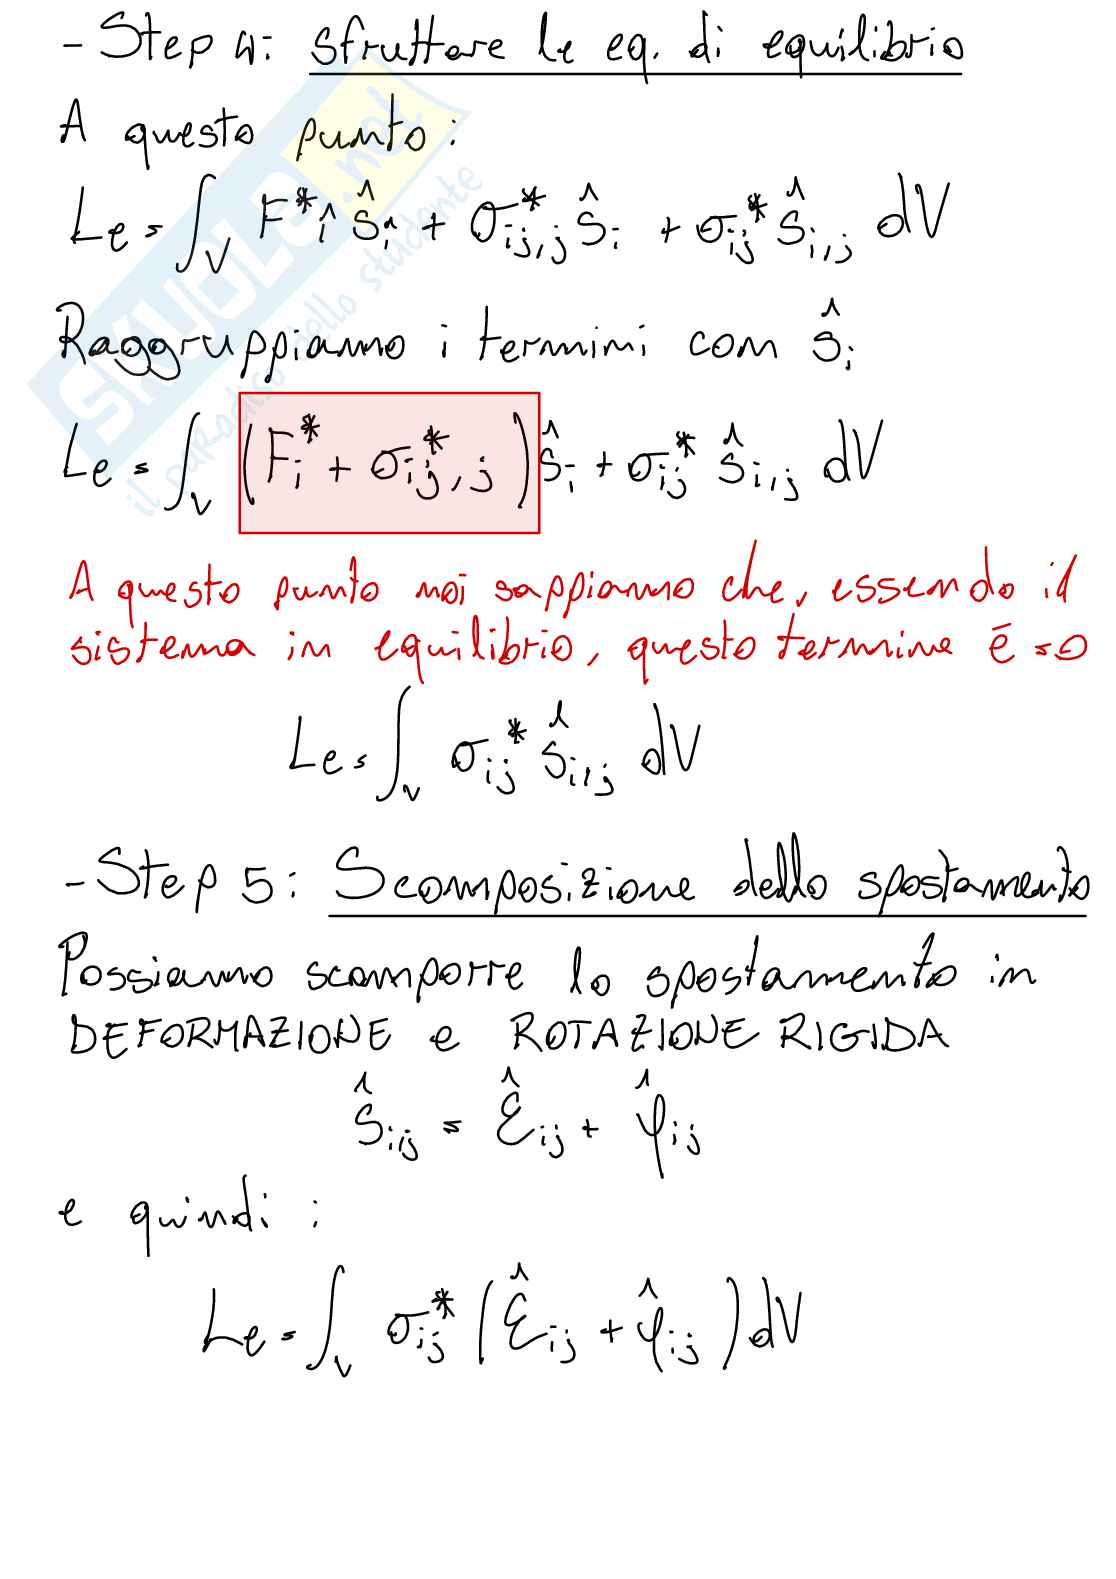 - Step 4: sfruttare le eq. di equilibrio
A questo punto:
Le = ∫_V F*_i ŝ_i + σ*_{ij,j} ŝ_i + σ_{ij}* ŝ_{i,j} dV
Raggruppiamo i termini con ŝ_i
Le = ∫_V (F_i* + σ_{ij}*,j) ŝ_i + σ_{ij}* ŝ_{i,j} dV
A questo punto noi sappiamo che, essendo il
sistema in equilibrio, questo termine è =0
Le = ∫_V σ_{ij}* ŝ_{i,j} dV
- Step 5: Scomposizione dello spostamento
Possiamo scomporre lo spostamento in
DEFORMAZIONE e ROTAZIONE RIGIDA
ŝ_{i,j} = ε̂_{ij} + φ̂_{ij}
e quindi:
Le = ∫_V σ_{ij}* (ε̂_{ij} + φ̂_{ij}) dV
SKUOLA.net
il paradiso dello studente